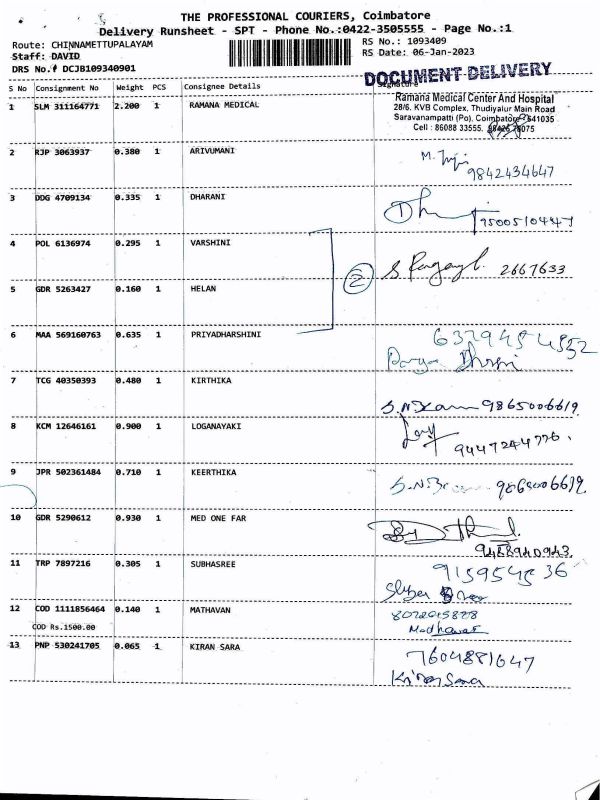 THE PROFESSIONAL COURIERS, Coimbatore
Delivery Runsheet - SPT - Phone No.:0422-3505555 - Page No.:1
Route: CHINNAMETTUPALAYAM
RS No.: 1093409
Staff: DAVID
RS Date: 06-Jan-2023
DRS No.# DCJB109340901
DOCUMENT DELIVERY
S No Consignment No Weight PCS Consignee Details Signature
1 SLM 311164771 2.200 1 RAMANA MEDICAL
Ramana Medical Center And Hospital
28/6. KVB Complex, Thudiyalur Main Road
Saravanampatti (Po), Coimbatore 641035
Cell : 86088 33555.
2 RJP 3063937 0.380 1 ARIVUMANI
9842434647
3 DDG 4709134 0.335 1 DHARANI
9500510447
4 POL 6136974 0.295 1 VARSHINI
② 2667633
5 GDR 5263427 0.160 1 HELAN
6 MAA 569160763 0.635 1 PRIYADHARSHINI
7 TCG 40350393 0.480 1 KIRTHIKA
9865006619
8 KCM 12646161 0.900 1 LOGANAYAKI
9447244776.
9 JPR 502361484 0.710 1 KEERTHIKA
9865006619
10 GDR 5290612 0.930 1 MED ONE FAR
9488940943
11 TRP 7897216 0.305 1 SUBHASREE
12 COD 1111856464 0.140 1 MATHAVAN
COD Rs.1500.00
Madhavan
13 PNP 530241705 0.065 1 KIRAN SARA
7604881647
Kiran Sara